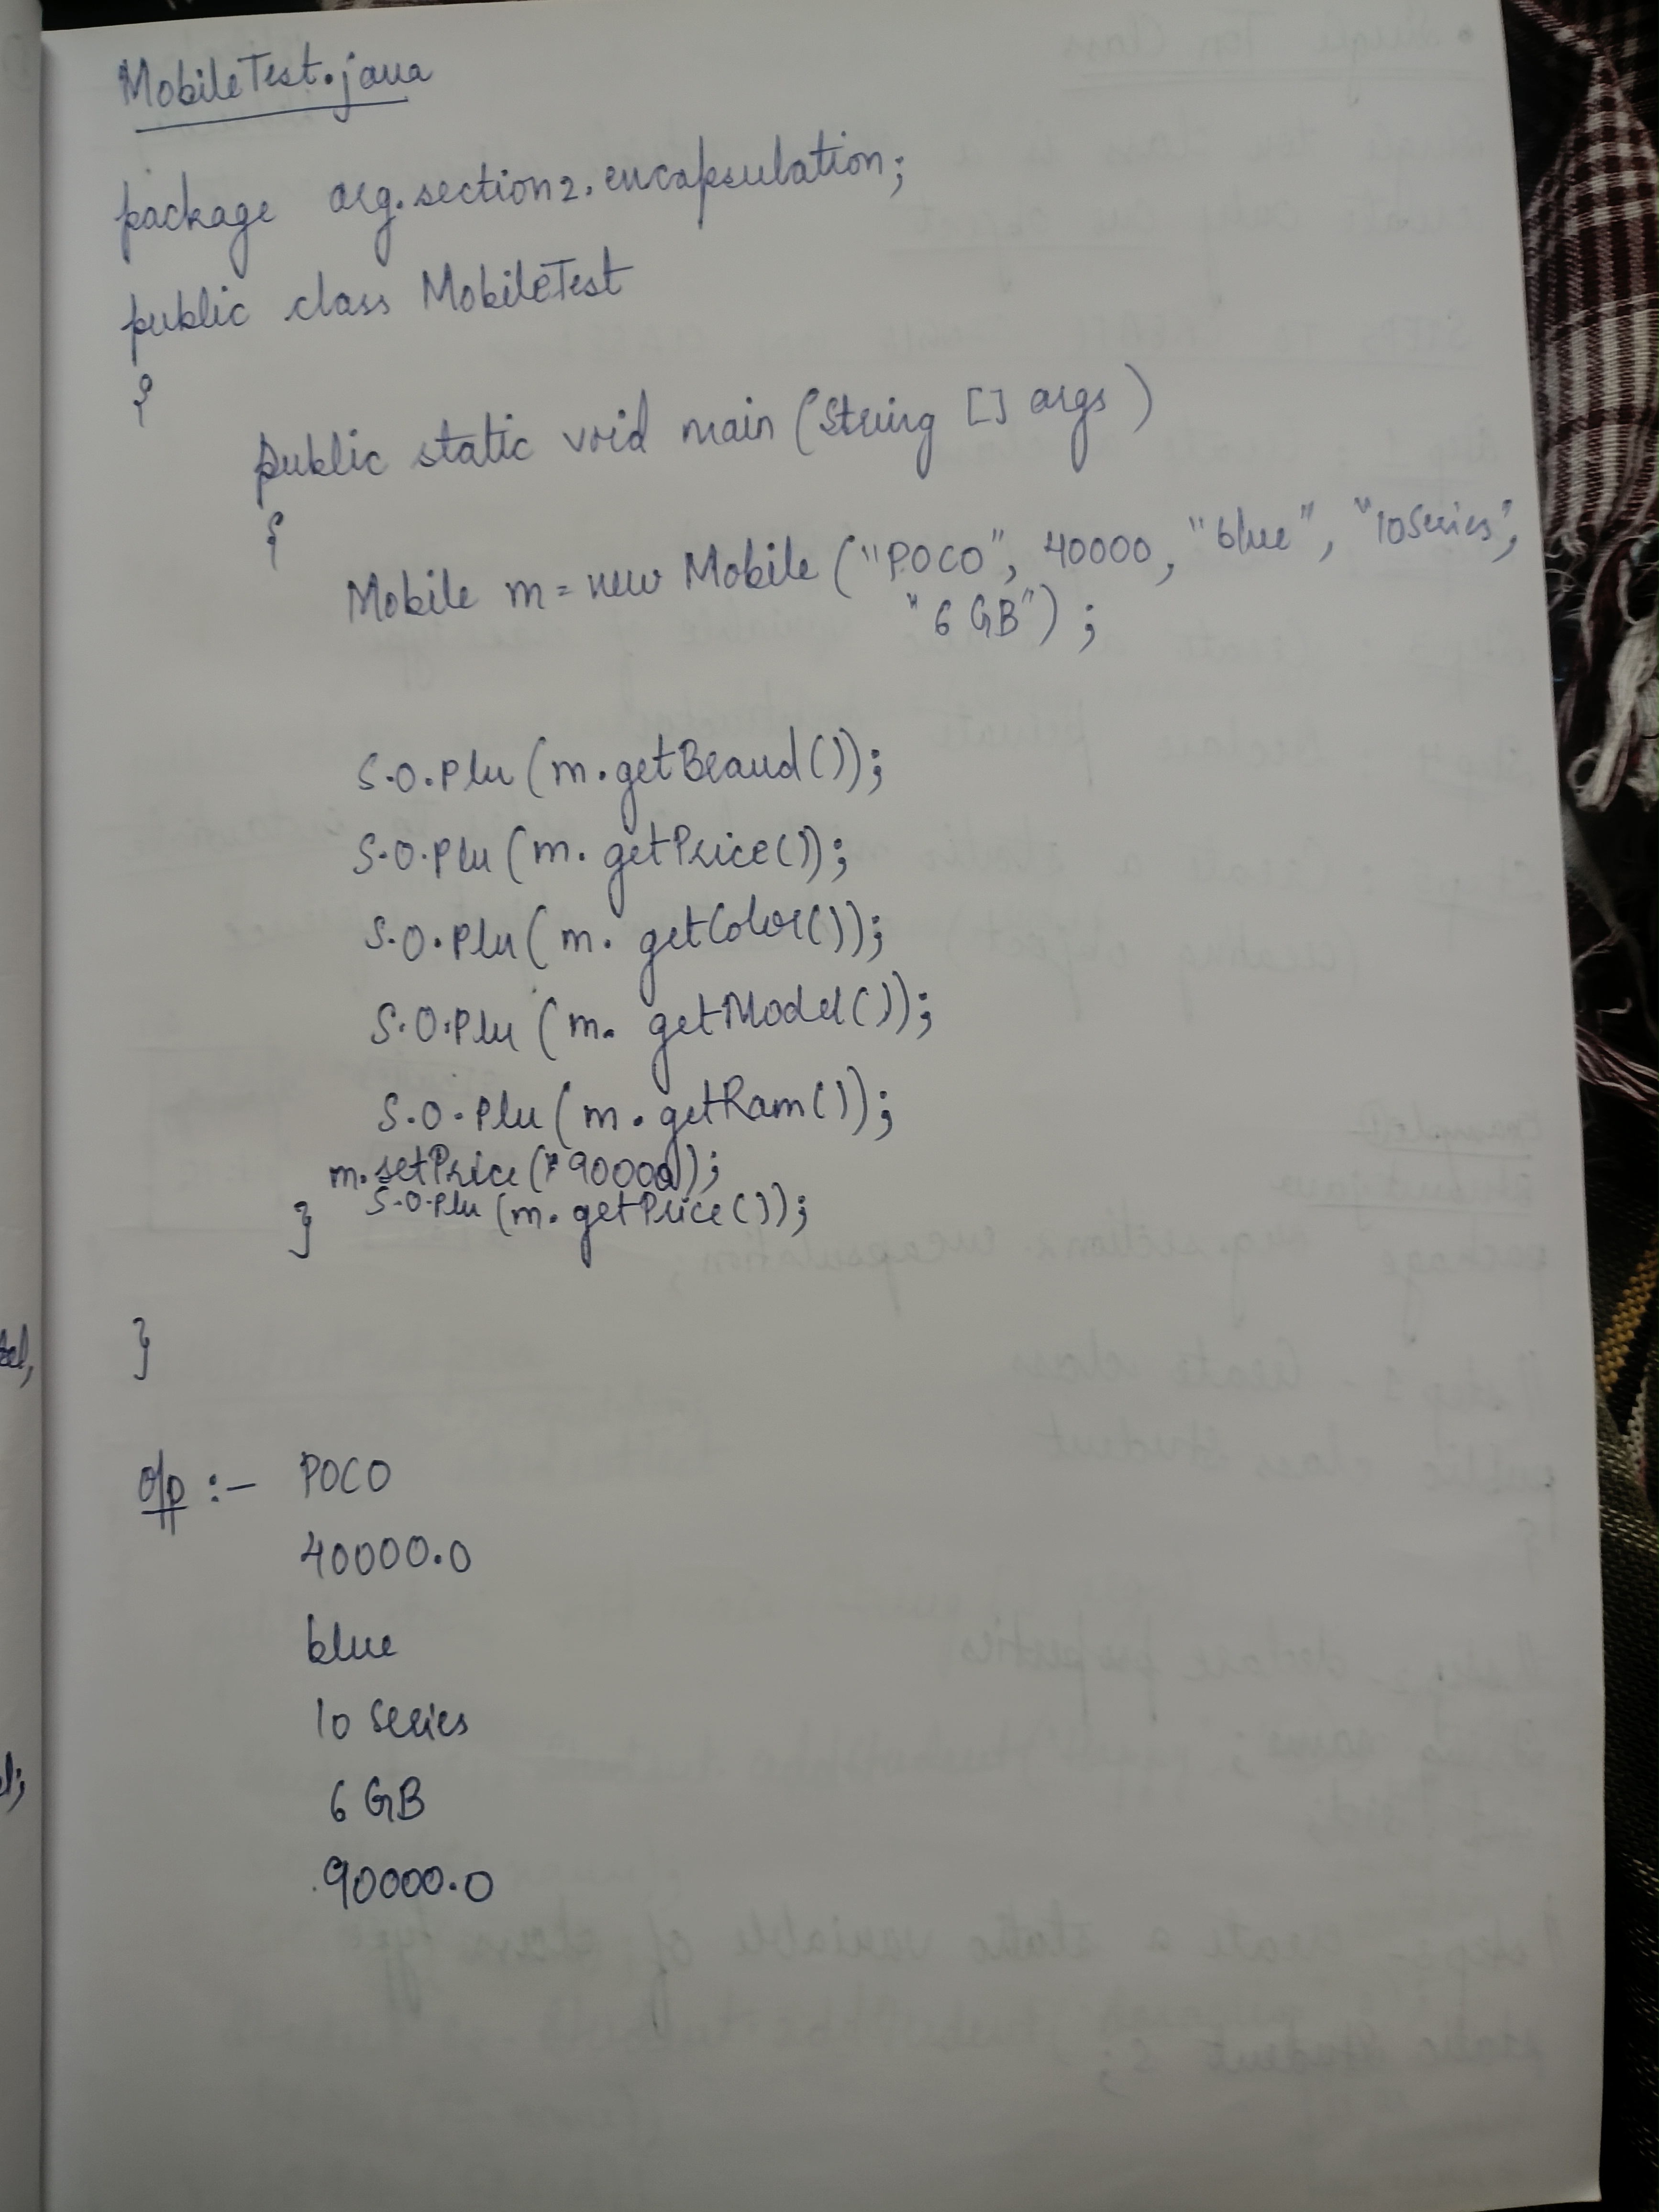 MobileTest.java
package org.section2.encapsulation;
public class MobileTest
{
public static void main (String [] args)
{
Mobile m = new Mobile ("POCO", 40000, "blue", "10Series",
"6 GB");
S.O.Pln (m.getBrand());
S.O.Pln (m. getPrice());
S.O.Pln (m. getColor());
S.O.Pln (m. getModel());
S.O.Pln (m. getRam());
m.setPrice (90000);
S.O.Pln (m. getPrice());
}
}
o/p :- POCO
40000.0
blue
10 Series
6 GB
90000.0